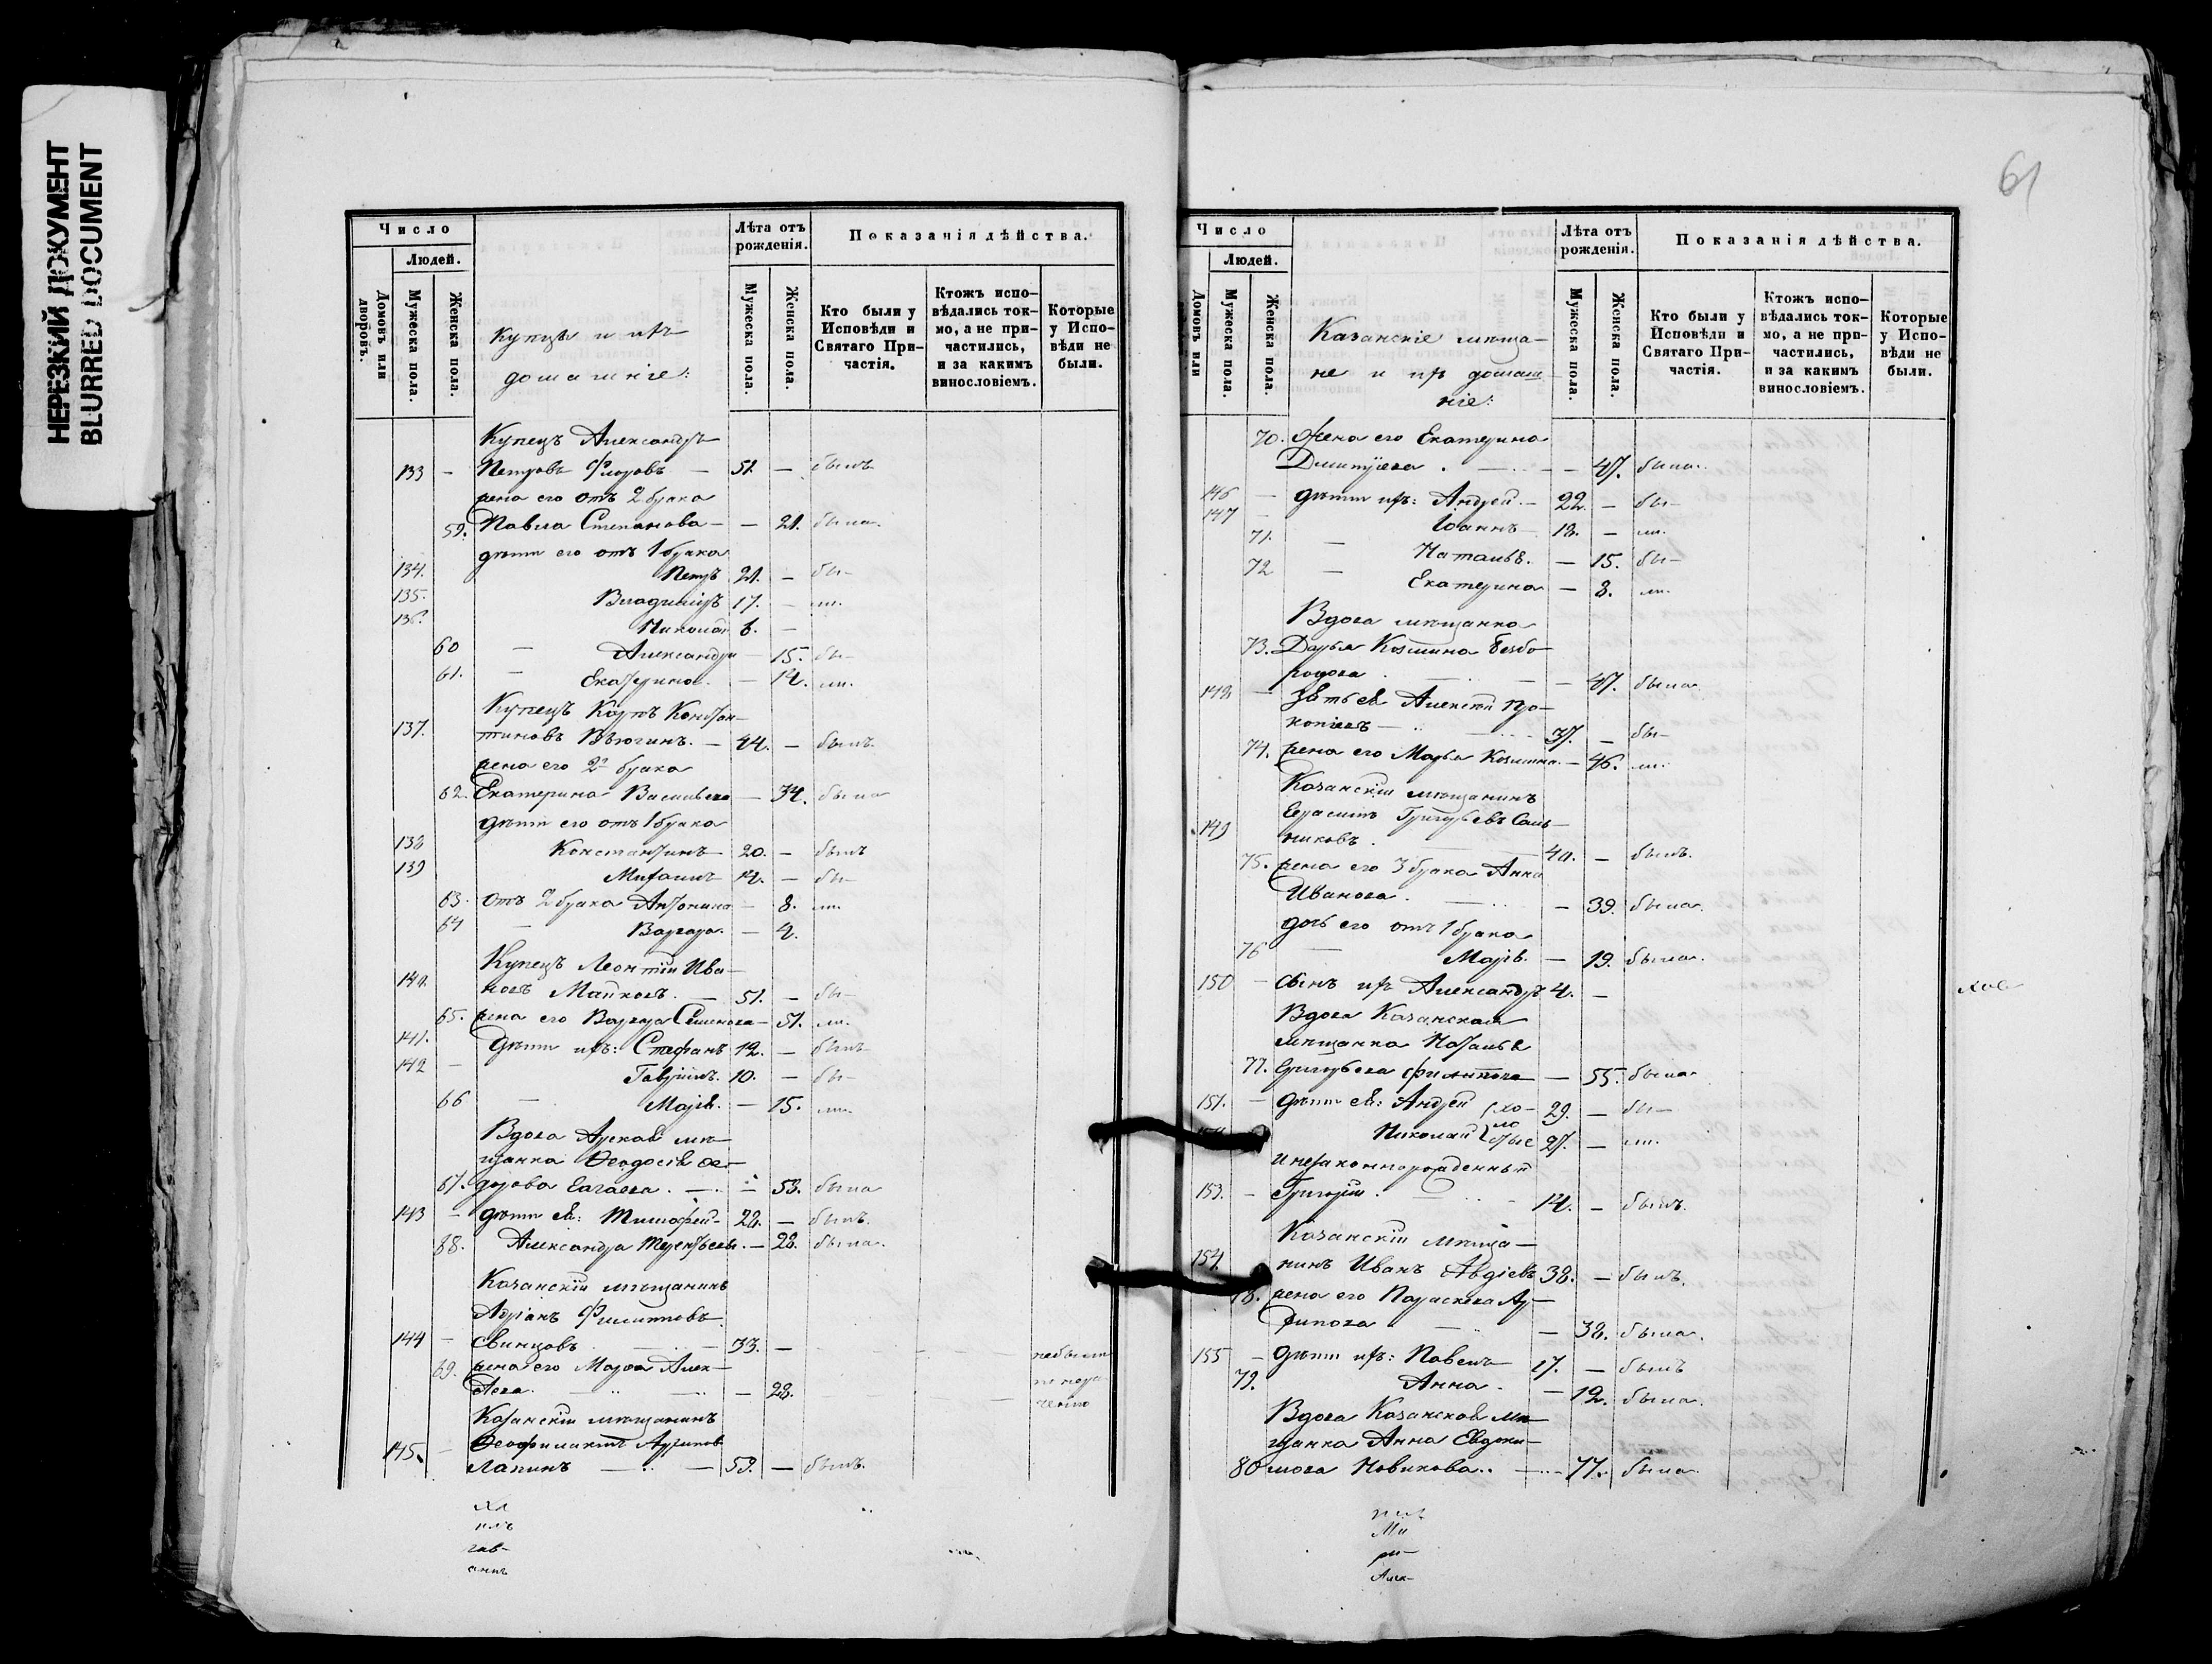 НЕРЕЗКИЙ ДОКУМЕНТ
BLURRED DOCUMENT
Число
Людей.
Домовъ или дворовъ.
Мужеска пола.
Женска пола.
Купцы и ихъ
домашніе:
Лѣта отъ рожденія.
Мужеска пола.
Женска пола.
Показанія дѣйства.
Кто были у Исповѣди и Святаго Причастія.
Ктожъ исповѣдались токмо, а не причастились, и за какимъ винословіемъ.
Которые у Исповѣди не были.
Купецъ Александръ
133 — Петровъ Флоровъ — 51. — былъ
жена его отъ 2 брака
59. Павла Степанова — — 21. была.
дѣти его отъ 1 брака
134. Петръ 21. — бы—
135. Владиміръ 17. — ли.
136. Николай 6. —
60 — Александра — 15. бы—
61. — Екатерина. — 12. ли.
Купецъ Карпъ Констан—
137. тиновъ Вьюгинъ. — 44. — былъ.
жена его 2го брака
62. Екатерина Васильева — 34. была
дѣти его отъ 1 брака
138 Константинъ 20. — былъ
139 Михаилъ 12. — бы—
63. отъ 2 брака Антонина — 8. ли.
64 — Варвара. — 4.
Купецъ Леонтій Ива—
140. новъ Майковъ. — 51. — бы—
65. жена его Варвара Семенова — 51. ли.
141. Дѣти ихъ: Стефанъ 12. — былъ
142 — Гавріилъ. 10. — бы—
66 — Марія. — 15. ли.
Вдова Арская мѣ—
щанка Ѳеодосія Ѳе—
67. дорова — 53. была
143 — дѣти ея: Тимофей — 28. — былъ.
68. Александра Терентьевы. — 23. была.
Казанскій мѣщанинъ
Адріанъ Филипповъ
144 — Свинцовъ — 33. — небыли
69. жена его Марѳа Алек— по нера—
— 28. — чению
Казанскій мѣщанинъ
Ѳеофилактъ
145. — Лапинъ — 53. — былъ.
61
Число
Людей.
Домовъ или
Мужеска пола.
Женска пола.
Казанскіе мѣща—
не и ихъ домаш
ніе:
Лѣта отъ рожденія.
Мужеска пола.
Женска пола.
Показанія дѣйства.
Кто были у Исповѣди и Святаго Причастія.
Ктожъ исповѣдались токмо, а не причастились, и за какимъ винословіемъ.
Которые у Исповѣди не были.
70. Жена его Екатерина
Дмитріева . — — 47. была.
146 — дѣти ихъ: Андрей — 22. — бы—
147 Іоаннъ 18. — ли.
71. — Наталья. — 15. бы—
72 — Екатерина — 8. ли.
Вдова мѣщанка
73. Дарья Козмина Безбо—
родова . — 47. была.
148 — Зять ея Алексѣй Про—
копіевъ — 37. — бы—
74. жена его Марья Козмина — 46. ли.
Казанскій мѣщанинъ
Герасимъ Григорьевъ Саль—
149 никовъ . — 40. — былъ.
75. жена его 3 брака Анна
Иванова. — 39. была.
дочь его отъ 1 брака
76 — Марія. — 19. была.
150 — сынъ ихъ Александръ 4. —
Вдова Казанская
мѣщанка Наталья
77. Григорьева Филипова — 55. была.
151. — дѣти ея: Андрей хо— 29. — бы—
Николай ло стые 27. — ли.
и незаконнорожденный
153. — Григорій. — 14. — былъ.
Казанскій мѣща—
154 нинъ Иванъ Авдіевъ 38. — былъ.
78. жена его Параскева Ар—
хипова — 38. была.
155 — дѣти ихъ: Павелъ 17. — былъ
79. Анна. — 12. была.
Вдова Казанская мѣ—
щанка Анна Евдоки—
80 мова Новикова. — 77. была.